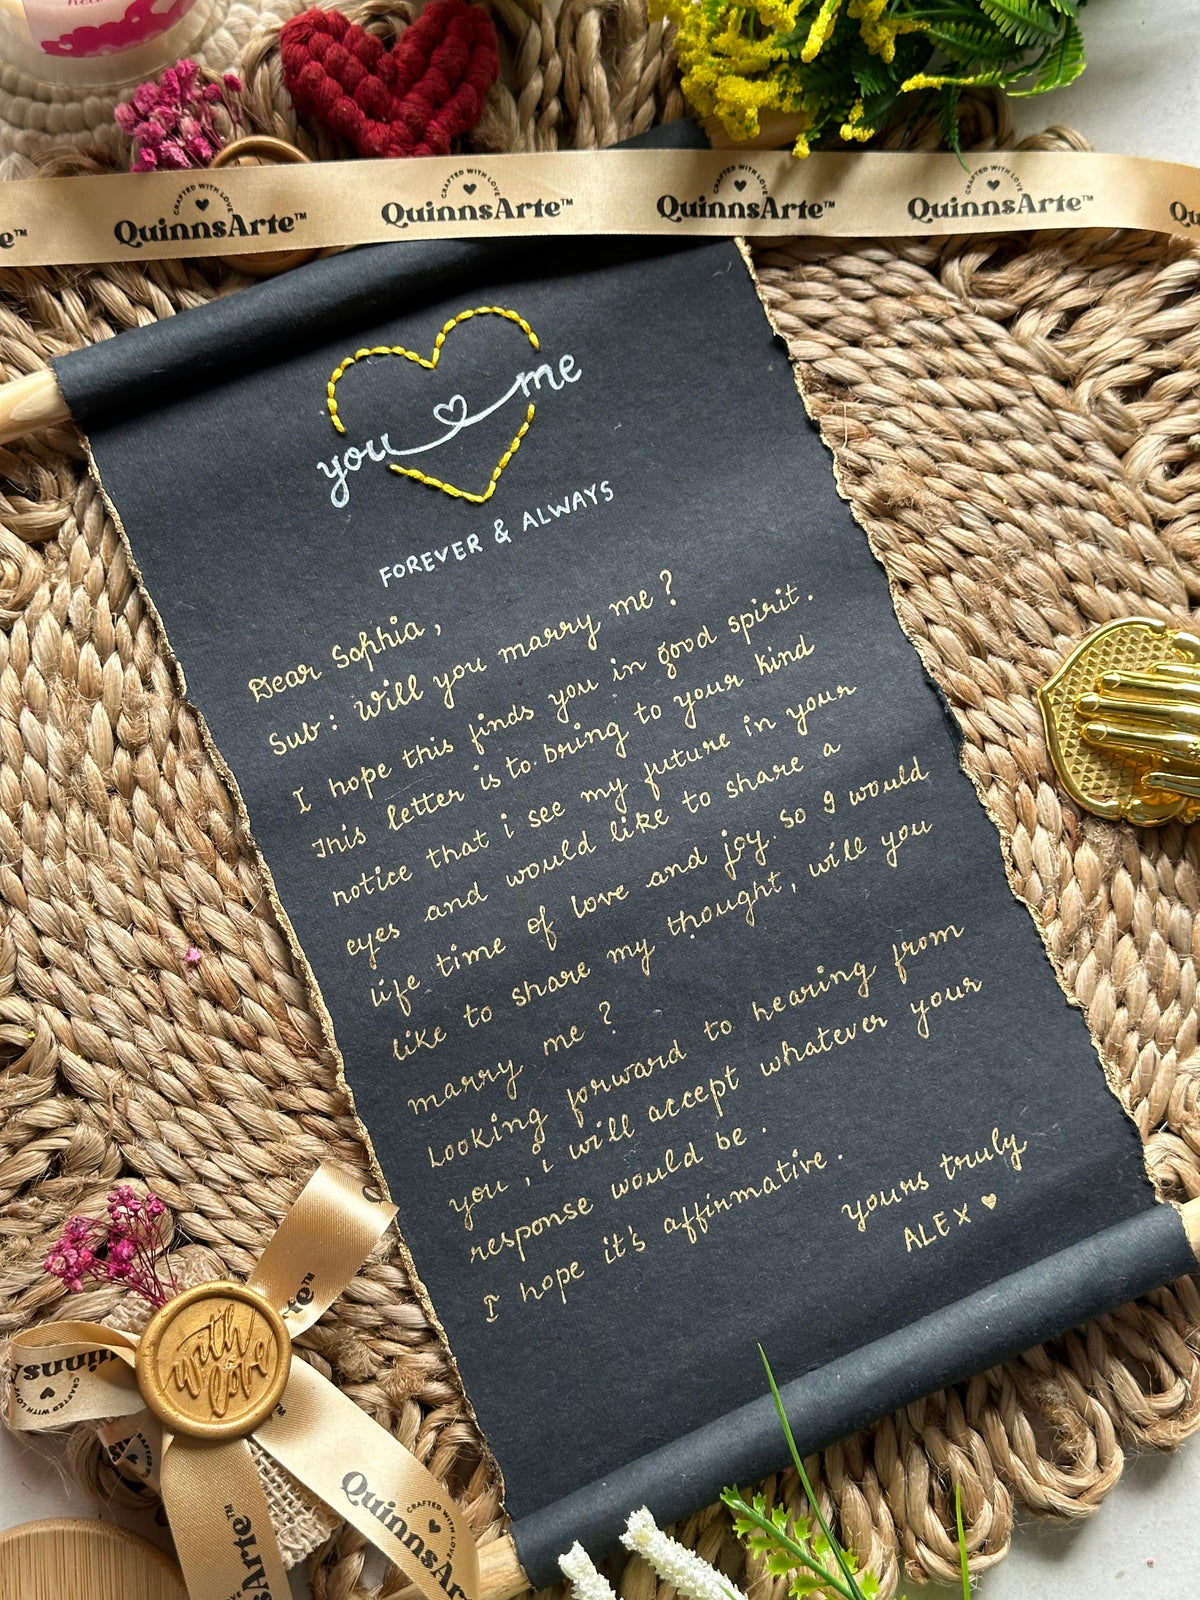 hea
CRAFTED WITH LOVE
QuinnsArte™
CRAFTED WITH LOVE
QuinnsArte™
CRAFTED WITH LOVE
QuinnsArte™
CRAFTED WITH LOVE
QuinnsArte™
you me
FOREVER & ALWAYS
Dear Sophia,
Sub: Will you marry me?
I hope this finds you in good spirit.
This letter is to bring to your kind
notice that i see my future in your
eyes and would like to share a
life time of love and joy. So I would
like to share my thought, will you
marry me?
Looking forward to hearing from
you, i will accept whatever your
response would be.
I hope it's affirmative.
yours truly
ALEX
with
love
CRAFTED WITH LOVE
QuinnsArte